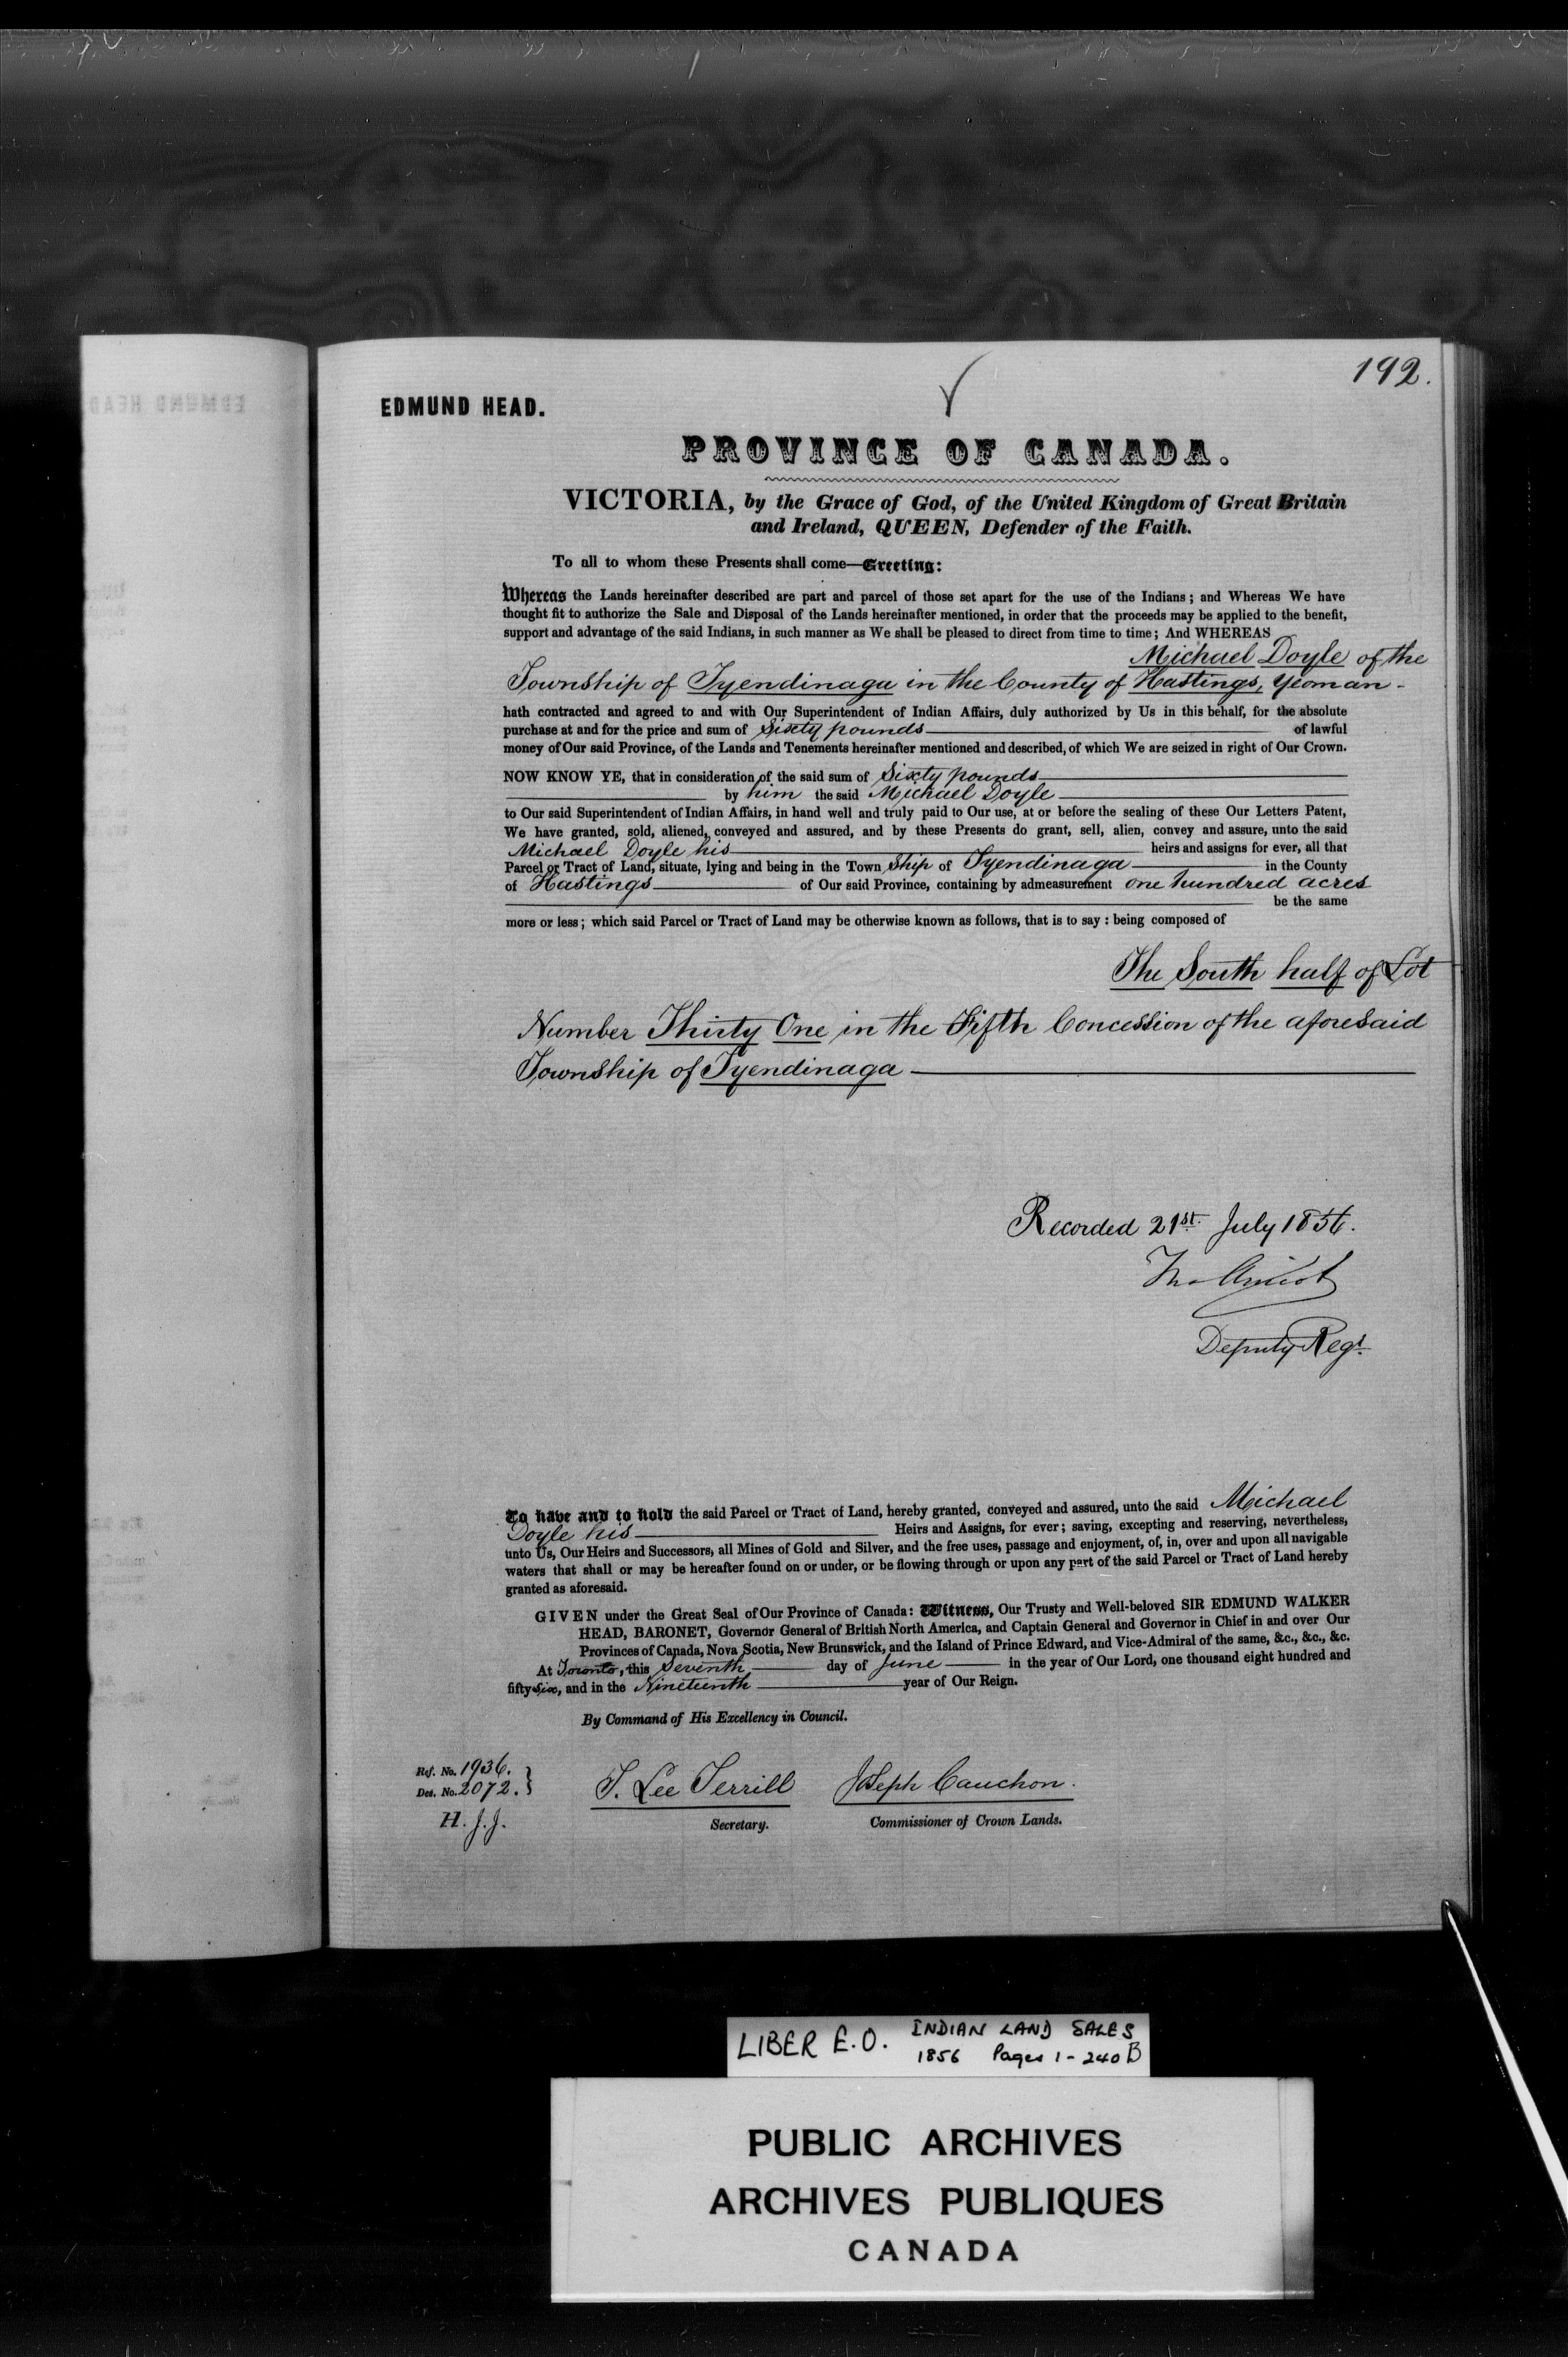 192.
EDMUND HEAD.
PROVINCE OF CANADA.
VICTORIA, by the Grace of God, of the United Kingdom of Great Britain
and Ireland, QUEEN, Defender of the Faith.
To all to whom these Presents shall come—Greeting:
Whereas the Lands hereinafter described are part and parcel of those set apart for the use of the Indians; and Whereas We have
thought fit to authorize the Sale and Disposal of the Lands hereinafter mentioned, in order that the proceeds may be applied to the benefit,
support and advantage of the said Indians, in such manner as We shall be pleased to direct from time to time; And WHEREAS
Michael Doyle of the
Township of Tyendinaga in the County of Hastings, Yeoman -
hath contracted and agreed to and with Our Superintendent of Indian Affairs, duly authorized by Us in this behalf, for the absolute
purchase at and for the price and sum of Sixty pounds of lawful
money of Our said Province, of the Lands and Tenements hereinafter mentioned and described, of which We are seized in right of Our Crown.
NOW KNOW YE, that in consideration of the said sum of Sixty pounds
by him the said Michael Doyle
to Our said Superintendent of Indian Affairs, in hand well and truly paid to Our use, at or before the sealing of these Our Letters Patent,
We have granted, sold, aliened, conveyed and assured, and by these Presents do grant, sell, alien, convey and assure, unto the said
Michael Doyle his heirs and assigns for ever, all that
Parcel or Tract of Land, situate, lying and being in the Town Ship of Tyendinaga in the County
of Hastings of Our said Province, containing by admeasurement one hundred acres
be the same
more or less; which said Parcel or Tract of Land may be otherwise known as follows, that is to say: being composed of
The South half of Lot
Number Thirty One in the Fifth Concession of the aforesaid
Township of Tyendinaga
Recorded 21st. July 1856.
Deputy Regr.
To have and to hold the said Parcel or Tract of Land, hereby granted, conveyed and assured, unto the said Michael
Doyle his Heirs and Assigns, for ever; saving, excepting and reserving, nevertheless,
unto Us, Our Heirs and Successors, all Mines of Gold and Silver, and the free uses, passage and enjoyment, of, in, over and upon all navigable
waters that shall or may be hereafter found on or under, or be flowing through or upon any part of the said Parcel or Tract of Land hereby
granted as aforesaid.
GIVEN under the Great Seal of Our Province of Canada: Witness, Our Trusty and Well-beloved SIR EDMUND WALKER
HEAD, BARONET, Governor General of British North America, and Captain General and Governor in Chief in and over Our
Provinces of Canada, Nova Scotia, New Brunswick, and the Island of Prince Edward, and Vice-Admiral of the same, &c., &c., &c.
At Toronto, this Seventh day of June in the year of Our Lord, one thousand eight hundred and
fifty Six, and in the Nineteenth year of Our Reign.
By Command of His Excellency in Council.
Ref. No. 1936.
Des. No. 2072.
H. J. J.
T. Lee Terrill Joseph Cauchon.
Secretary. Commissioner of Crown Lands.
LIBER E.O. INDIAN LAND SALES
1856 Pages 1 - 240 B
PUBLIC ARCHIVES
ARCHIVES PUBLIQUES
CANADA